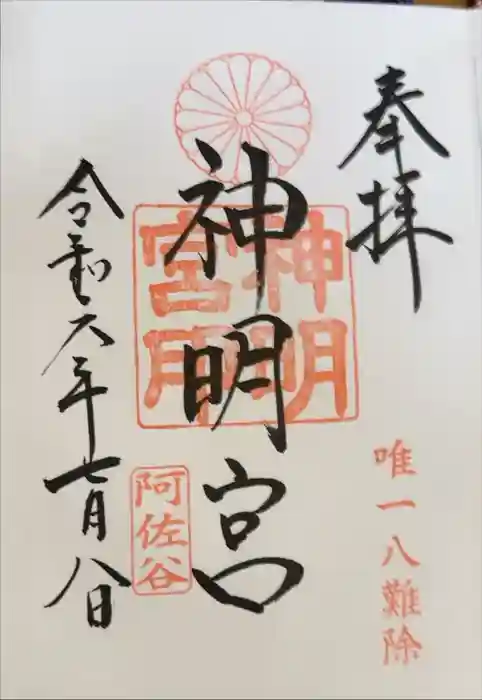 奉拝
唯一八難除
神明宮
神明
宮印
阿佐谷
令和六年七月八日